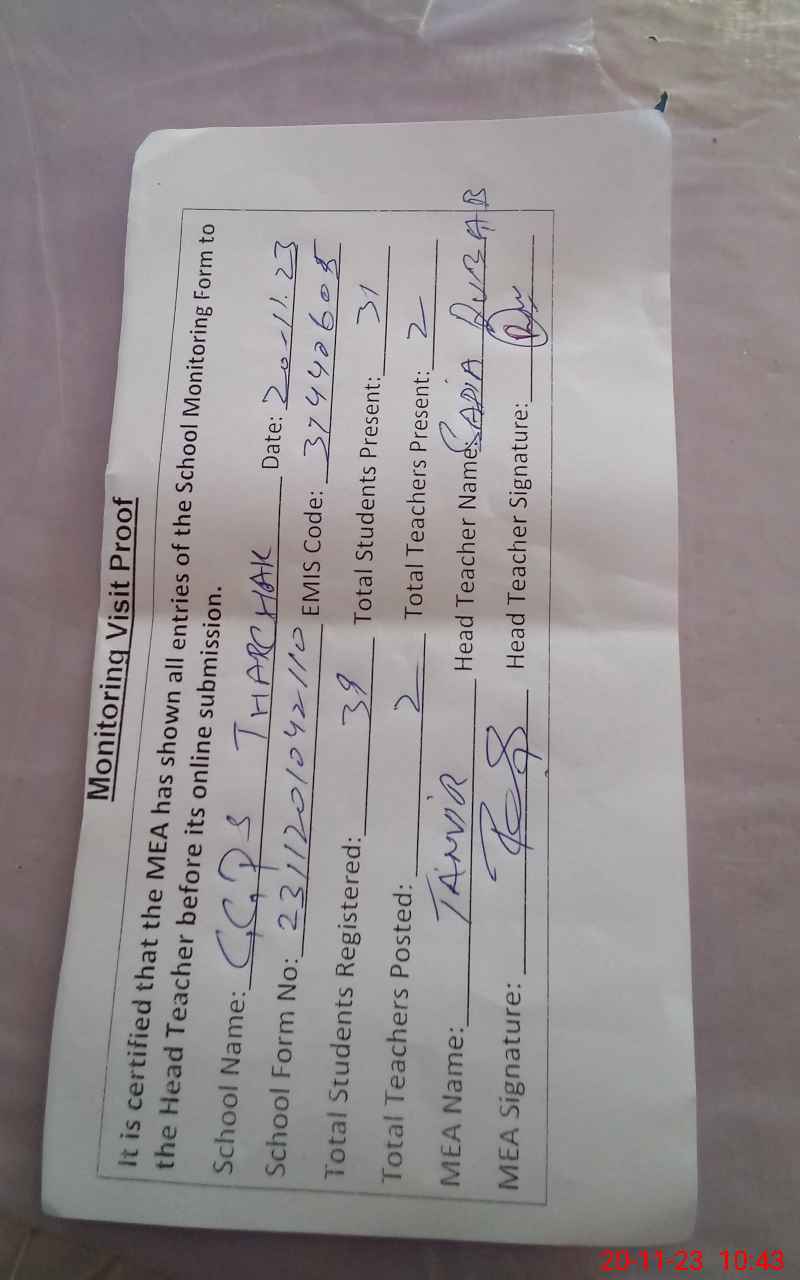 Monitoring Visit Proof
It is certified that the MEA has shown all entries of the School Monitoring Form to
the Head Teacher before its online submission.
School Name: GGPS THARCHAK Date: 20-11.23
School Form No: 2311201042110 EMIS Code: 37440605
Total Students Registered: 39 Total Students Present: 31
Total Teachers Posted: 2 Total Teachers Present: 2
MEA Name: TANVIR Head Teacher Name: SADIA RUBAB
MEA Signature: Head Teacher Signature:
20-11-23 10:43